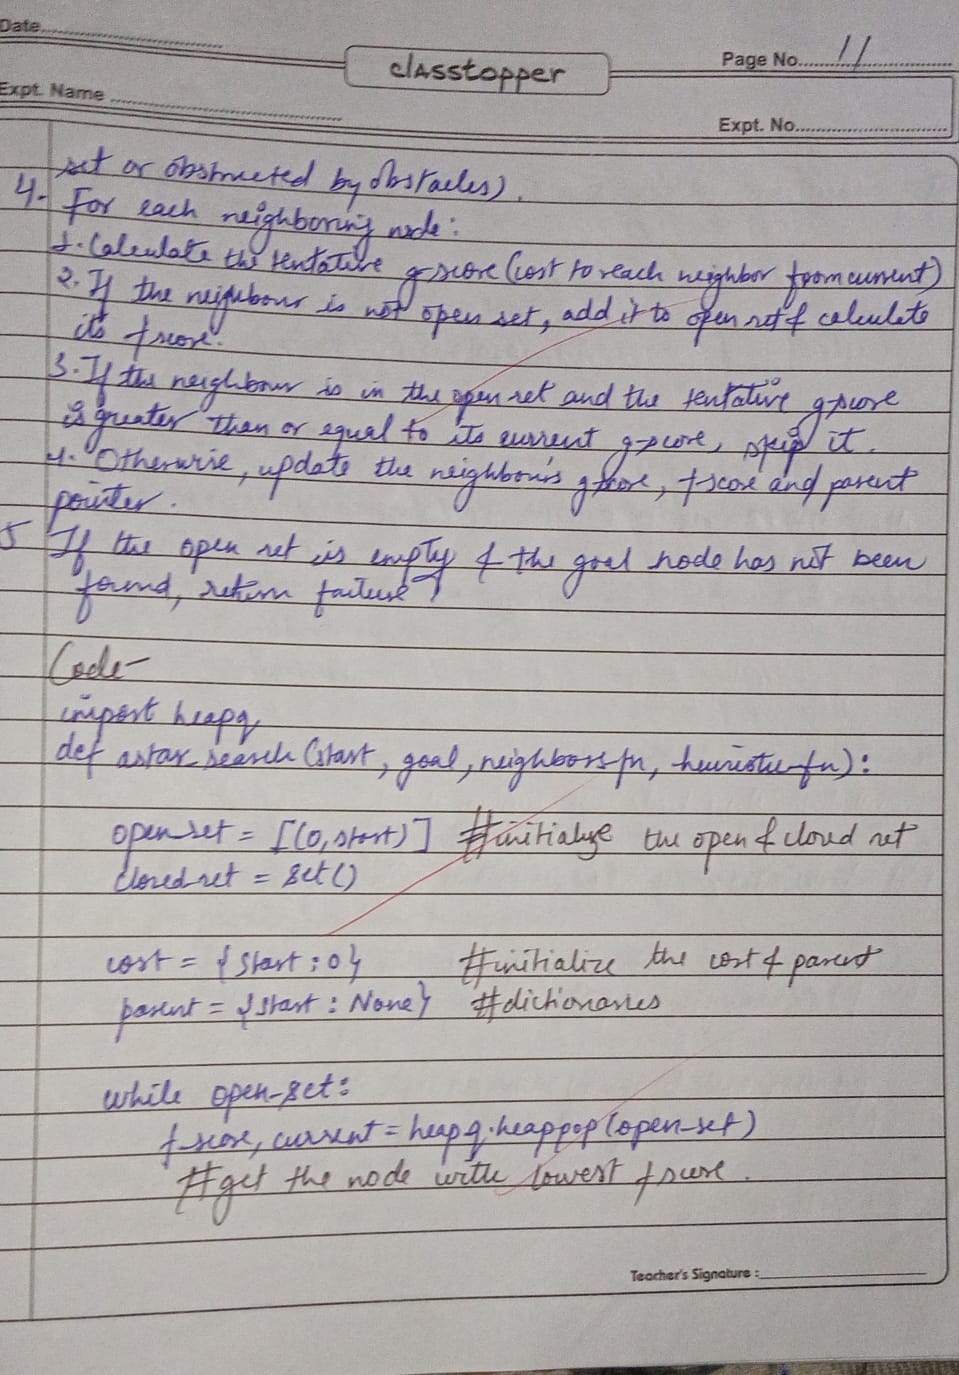 Date
classtopper
Page No. 11
Expt. Name
Expt. No.
set or obstructed by obstacles).
4. For each neighboring node:
1. Calculate the tentative g-score (cost to reach neighbor from current)
2. If the neighbour is not open set, add it to open set & calculate
its f score.
3. If the neighbour is in the open set and the tentative g-score
is greater than or equal to its current g-score, skip it.
4. Otherwise, update the neighbour's g score, f score and parent
pointer.
5 If the open set is empty & the goal node has not been
found, return failure
Code-
import heapq
def astar_search (start, goal, neighbors-fn, heuristic-fn):
open_set = [(0, start)] #initialize the open & closed set
closed_set = set()
cost = {start : 0} #initialize the cost & parent
parent = {start : None} #dictionaries
while open-set:
f-score, current = heapq.heappop (open-set)
#get the node with lowest f score.
Teacher's Signature :